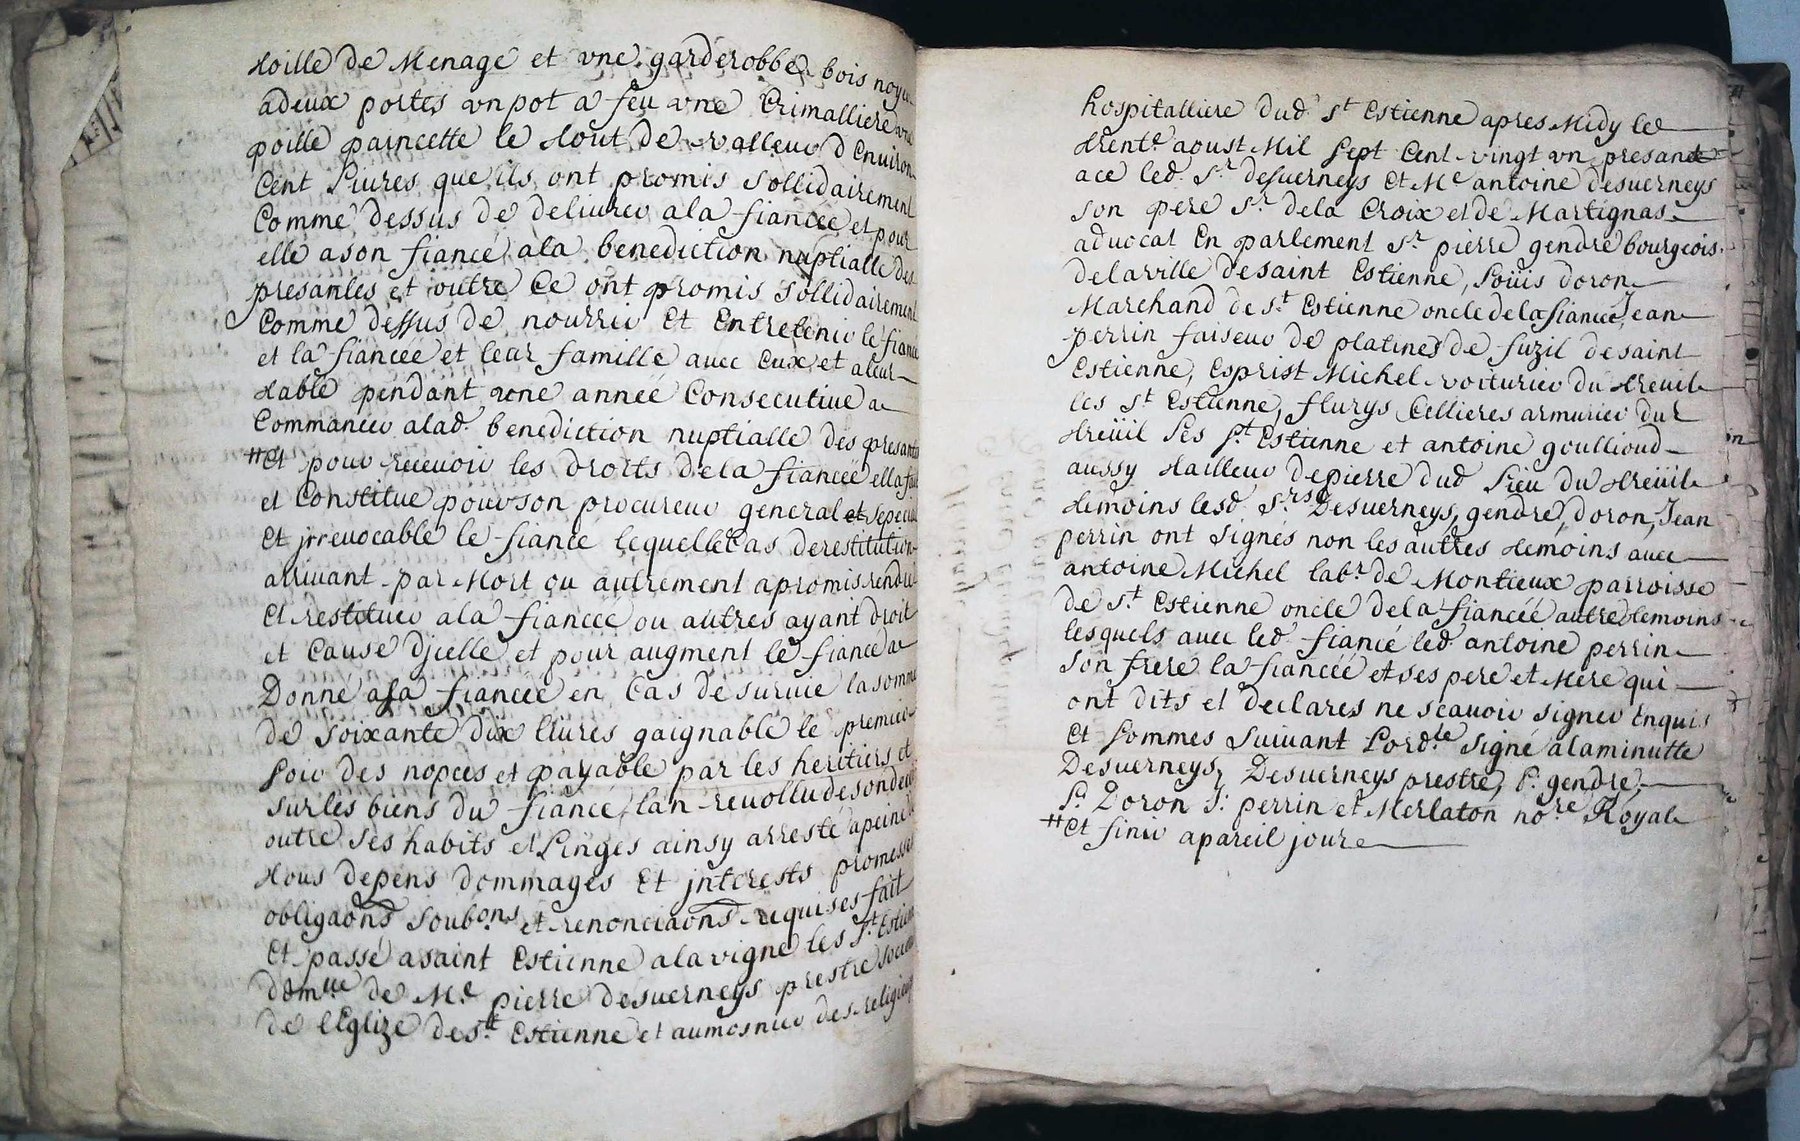 toille de Menage et une garderobbe bois noyer
a deux portes un pot a feu une Crimalliere une
poille paincette le tout de valleur d'Environ
Cent Livres que ils ont promis Sollidairement
Comme dessus de delivrer a la fiancée et pour
elle a son fiancé a la benediction nuptialle des
presantes et outre Ce ont promis Sollidairement
Comme dessus de nourrir Et Entretenir le fiancé
et la fiancée et leur famille avec Eux et a leur
table pendant une année Consecutive a
Commancer a lad. benediction nuptialle des presantes
# Et pour recevoir les droits de la fiancée ella fait
et Constitue pour son procureur general et special
Et jrrevocable le fiancé lequel le Cas de restitution
arrivant par Mort ou autrement a promis rendre
Et restituer a la fiancée ou autres ayant droit
et Cause Djcelle et pour augment le fiancé a
Donné a sa fiancée en Cas de survie la somme
de Soixante dix livres gaignable le premier
Soir des nopces et payable par les heritiers et
sur les biens du fiancé lan revollu de son deces
outre ses habits et Linges ainsy arresté a peine de
tous depens dommages Et jnterests promesses
obligaons soub.ons et renonciaons requises fait
Et passé a saint Estienne a la vigne les St. Estienne
dom.lle de Me. pierre Desverneys prestre Societaire
de lEglize de St. Estienne et aumosnier des religieuses
hospitalliere dud. St Estienne apres Midy le
trente aoust Mil Sept Cent vingt un presant
a ce led. Sr. desverneys Et Me antoine desverneys
son pere Sr. de la Croix et de Martignas
advocat En parlement Sr. pierre gendre bourgeois
de la ville de saint Estienne, Loüis doron
Marchand de St. Estienne oncle de la fiancée, Jean
perrin faiseur de platines de fuzil de saint
Estienne, Esprist Michel voiturier du treuil
les St Estienne, flurys Cellieres armurier dud
treüil Les St. Estienne et antoine goullioud
aussy tailleur de pierre dud. Lieu du treüil
temoins lesd. Srs. Desverneys, gendre, doron, Jean
perrin ont signés non les autres temoins avec
antoine Michel labr. de Montieux parroisse
de St. Estienne oncle de la fiancéé autre temoins
lesquels avec led. fiancé led. antoine perrin
son frere la fiancéé et ses pere et Mere qui
ont dits et declarés ne scavoir signer Enquis
Et Sommes suivant Lord.ce signé a la minutte
Desverneys, Desverneys prestre, P. gendre,
L. Doron J: perrin et Merlaton no.re Royal
# Et finir a pareil jour